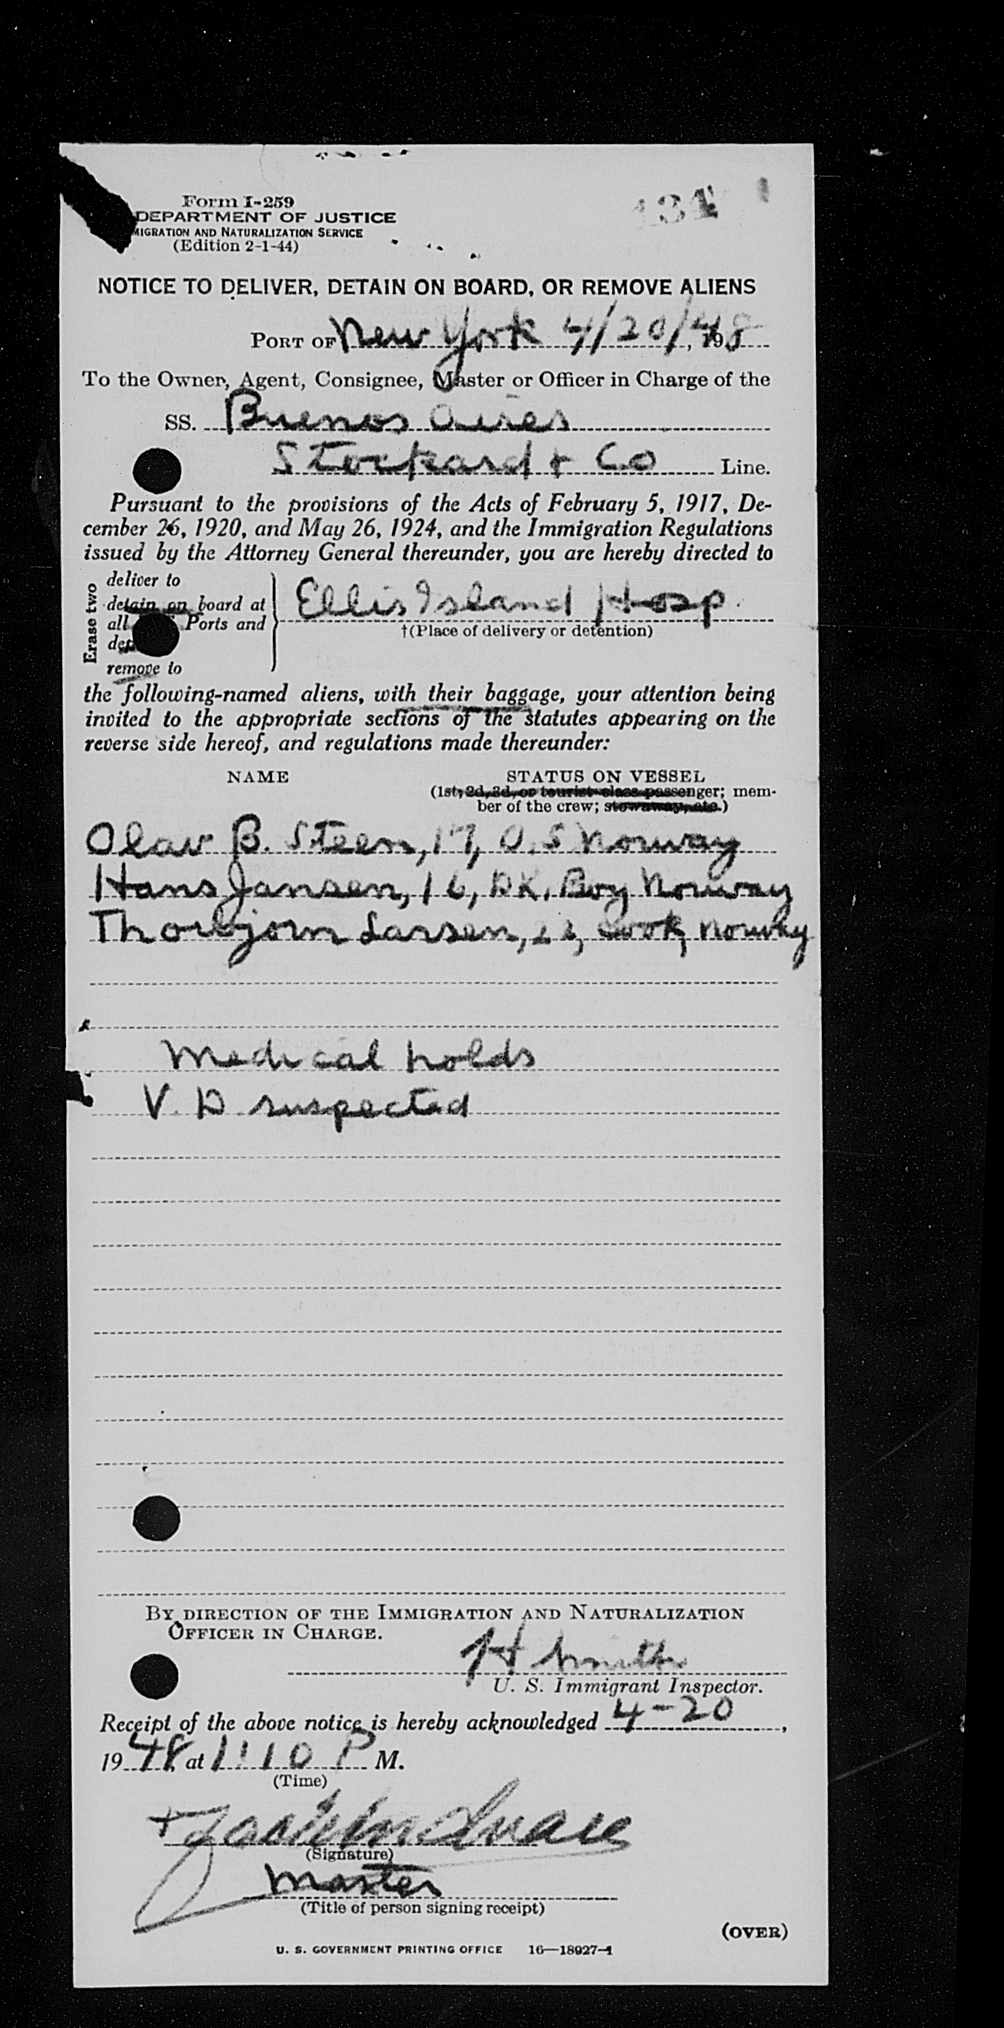 Form I-259
DEPARTMENT OF JUSTICE
MIGRATION AND NATURALIZATION SERVICE
(Edition 2-1-44)
NOTICE TO DELIVER, DETAIN ON BOARD, OR REMOVE ALIENS
PORT OF New York 4/20/48, 19
To the Owner, Agent, Consignee, Master or Officer in Charge of the
SS. Buenos Aires
Stockard & Co Line.
Pursuant to the provisions of the Acts of February 5, 1917, De-
cember 26, 1920, and May 26, 1924, and the Immigration Regulations
issued by the Attorney General thereunder, you are hereby directed to
Erase two
deliver to
detain on board at
all Ports and
remove to
Ellis Island Hosp.
†(Place of delivery or detention)
the following-named aliens, with their baggage, your attention being
invited to the appropriate sections of the statutes appearing on the
reverse side hereof, and regulations made thereunder:
NAME STATUS ON VESSEL
(1st, 2d, 3d, or tourist class passenger; mem-
ber of the crew; stowaway, etc.)
Olav B. Steen, 17, O.S Norway
Hans Jansen, 16, DK. Boy Norway
Thorbjorn Larsen, 22, Cook, Norway
Medical holds
V. D suspected
BY DIRECTION OF THE IMMIGRATION AND NATURALIZATION
OFFICER IN CHARGE.
H Smith
U. S. Immigrant Inspector.
Receipt of the above notice is hereby acknowledged 4-20,
19 48 at 1:10 P M.
(Time)
(Signature)
Master
(Title of person signing receipt)
(OVER)
U. S. GOVERNMENT PRINTING OFFICE 16—18027-1